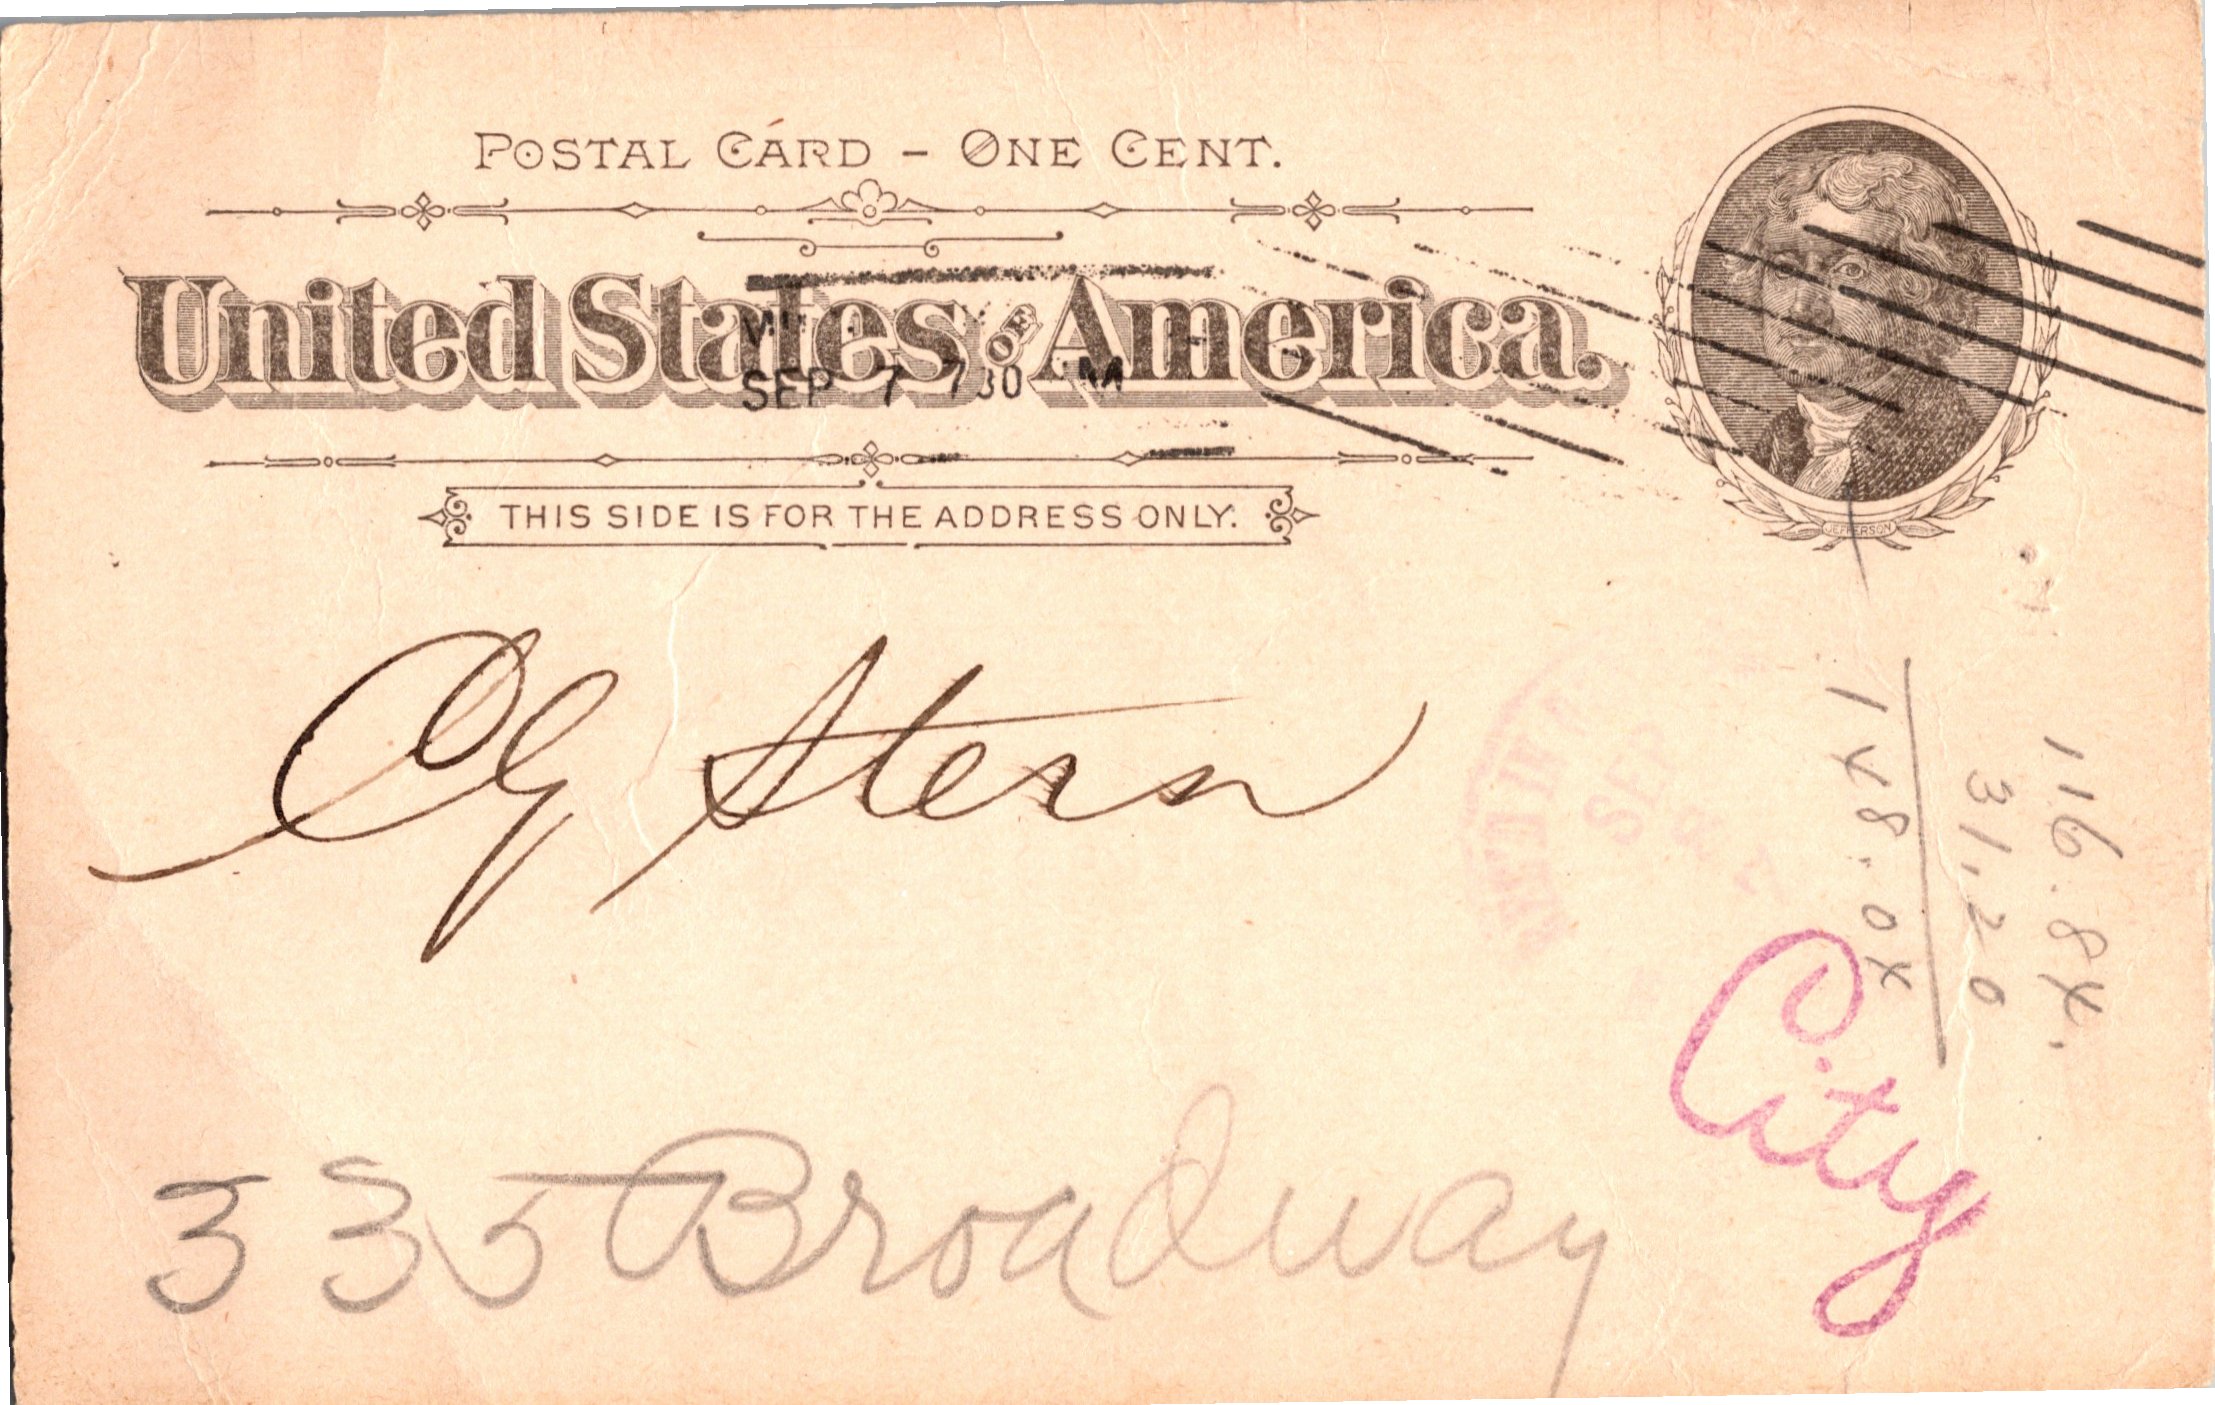 POSTAL CARD - ONE CENT.
United States OF America.
SEP 7 7 30 M
THIS SIDE IS FOR THE ADDRESS ONLY.
JEFFERSON
CG Stern
SEP
335 Broadway
City
116.84.
31,20
148.04